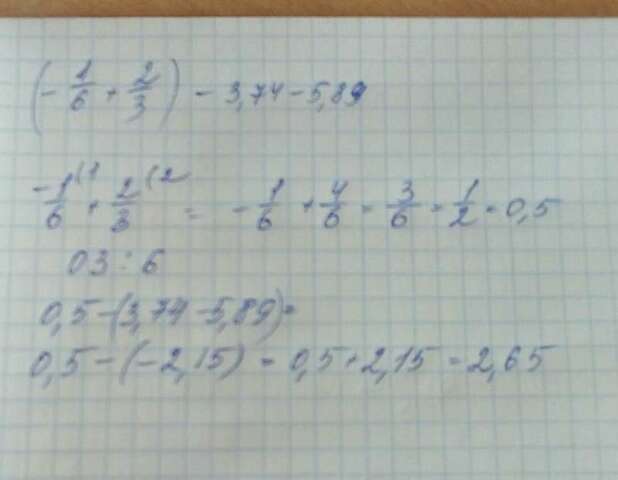 (-1/6 + 2/3) - 3,74 - 5,89
-1/6 (1 + 2/3 (2 = -1/6 + 4/6 = 3/6 = 1/2 = 0,5
03 : 6
0,5 - (3,74 - 5,89) =
0,5 - (-2,15) = 0,5 + 2,15 = 2,65